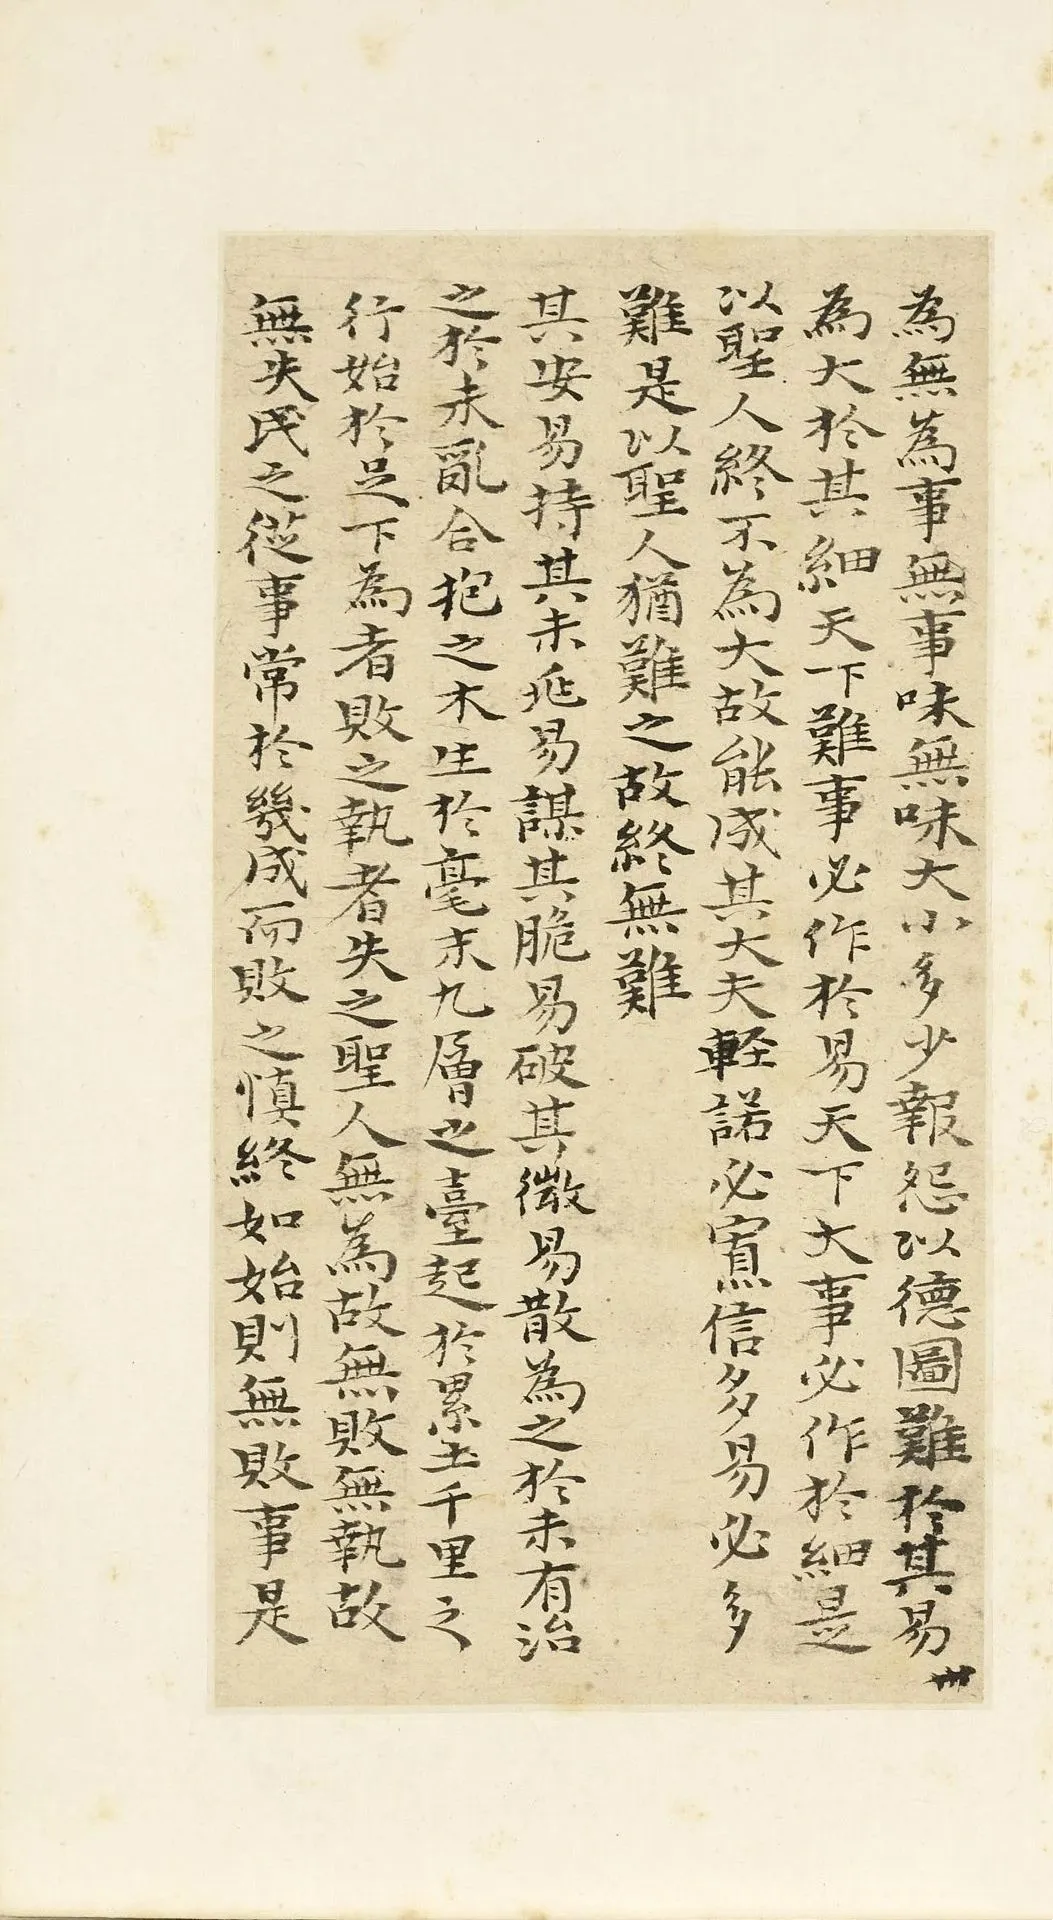 為無為事無事味無味大小多少報怨以德圖難於其易
為大於其細天下難事必作於易天下大事必作於細是
以聖人終不為大故能成其大夫輕諾必寡信多易必多
難是以聖人猶難之故終無難
其安易持其未兆易謀其脆易破其微易散為之於未有治
之於未亂合抱之木生於毫末九層之臺起於累土千里之
行始於足下為者敗之執者失之聖人無為故無敗無執故
無失民之從事常於幾成而敗之慎終如始則無敗事是